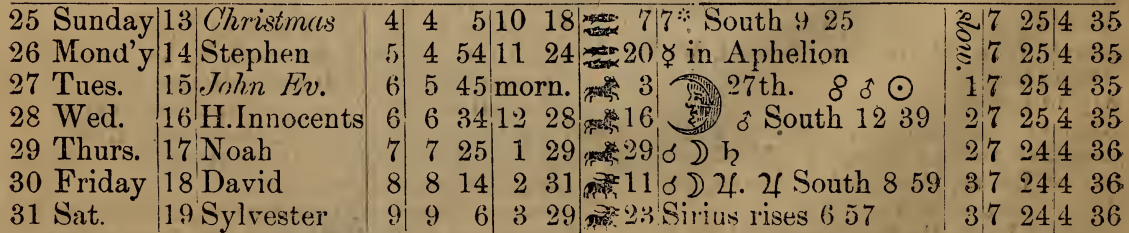 25 Sunday 13 Christmas 4 4 5 10 18 7 7* South 9 25 slow. 7 25 4 35
26 Mond'y 14 Stephen 5 4 54 11 24 20 ☿ in Aphelion 7 25 4 35
27 Tues. 15 John Ev. 6 5 45 morn. 3 27th. ☍ ♂ ☉ 1 7 25 4 35
28 Wed. 16 H.Innocents 6 6 34 12 28 16 ♂ South 12 39 2 7 25 4 35
29 Thurs. 17 Noah 7 7 25 1 29 29 ☌ ☽ ♄ 2 7 24 4 36
30 Friday 18 David 8 8 14 2 31 11 ☌ ☽ ♃. ♃ South 8 59 3 7 24 4 36
31 Sat. 19 Sylvester 9 9 6 3 29 23 Sirius rises 6 57 3 7 24 4 36